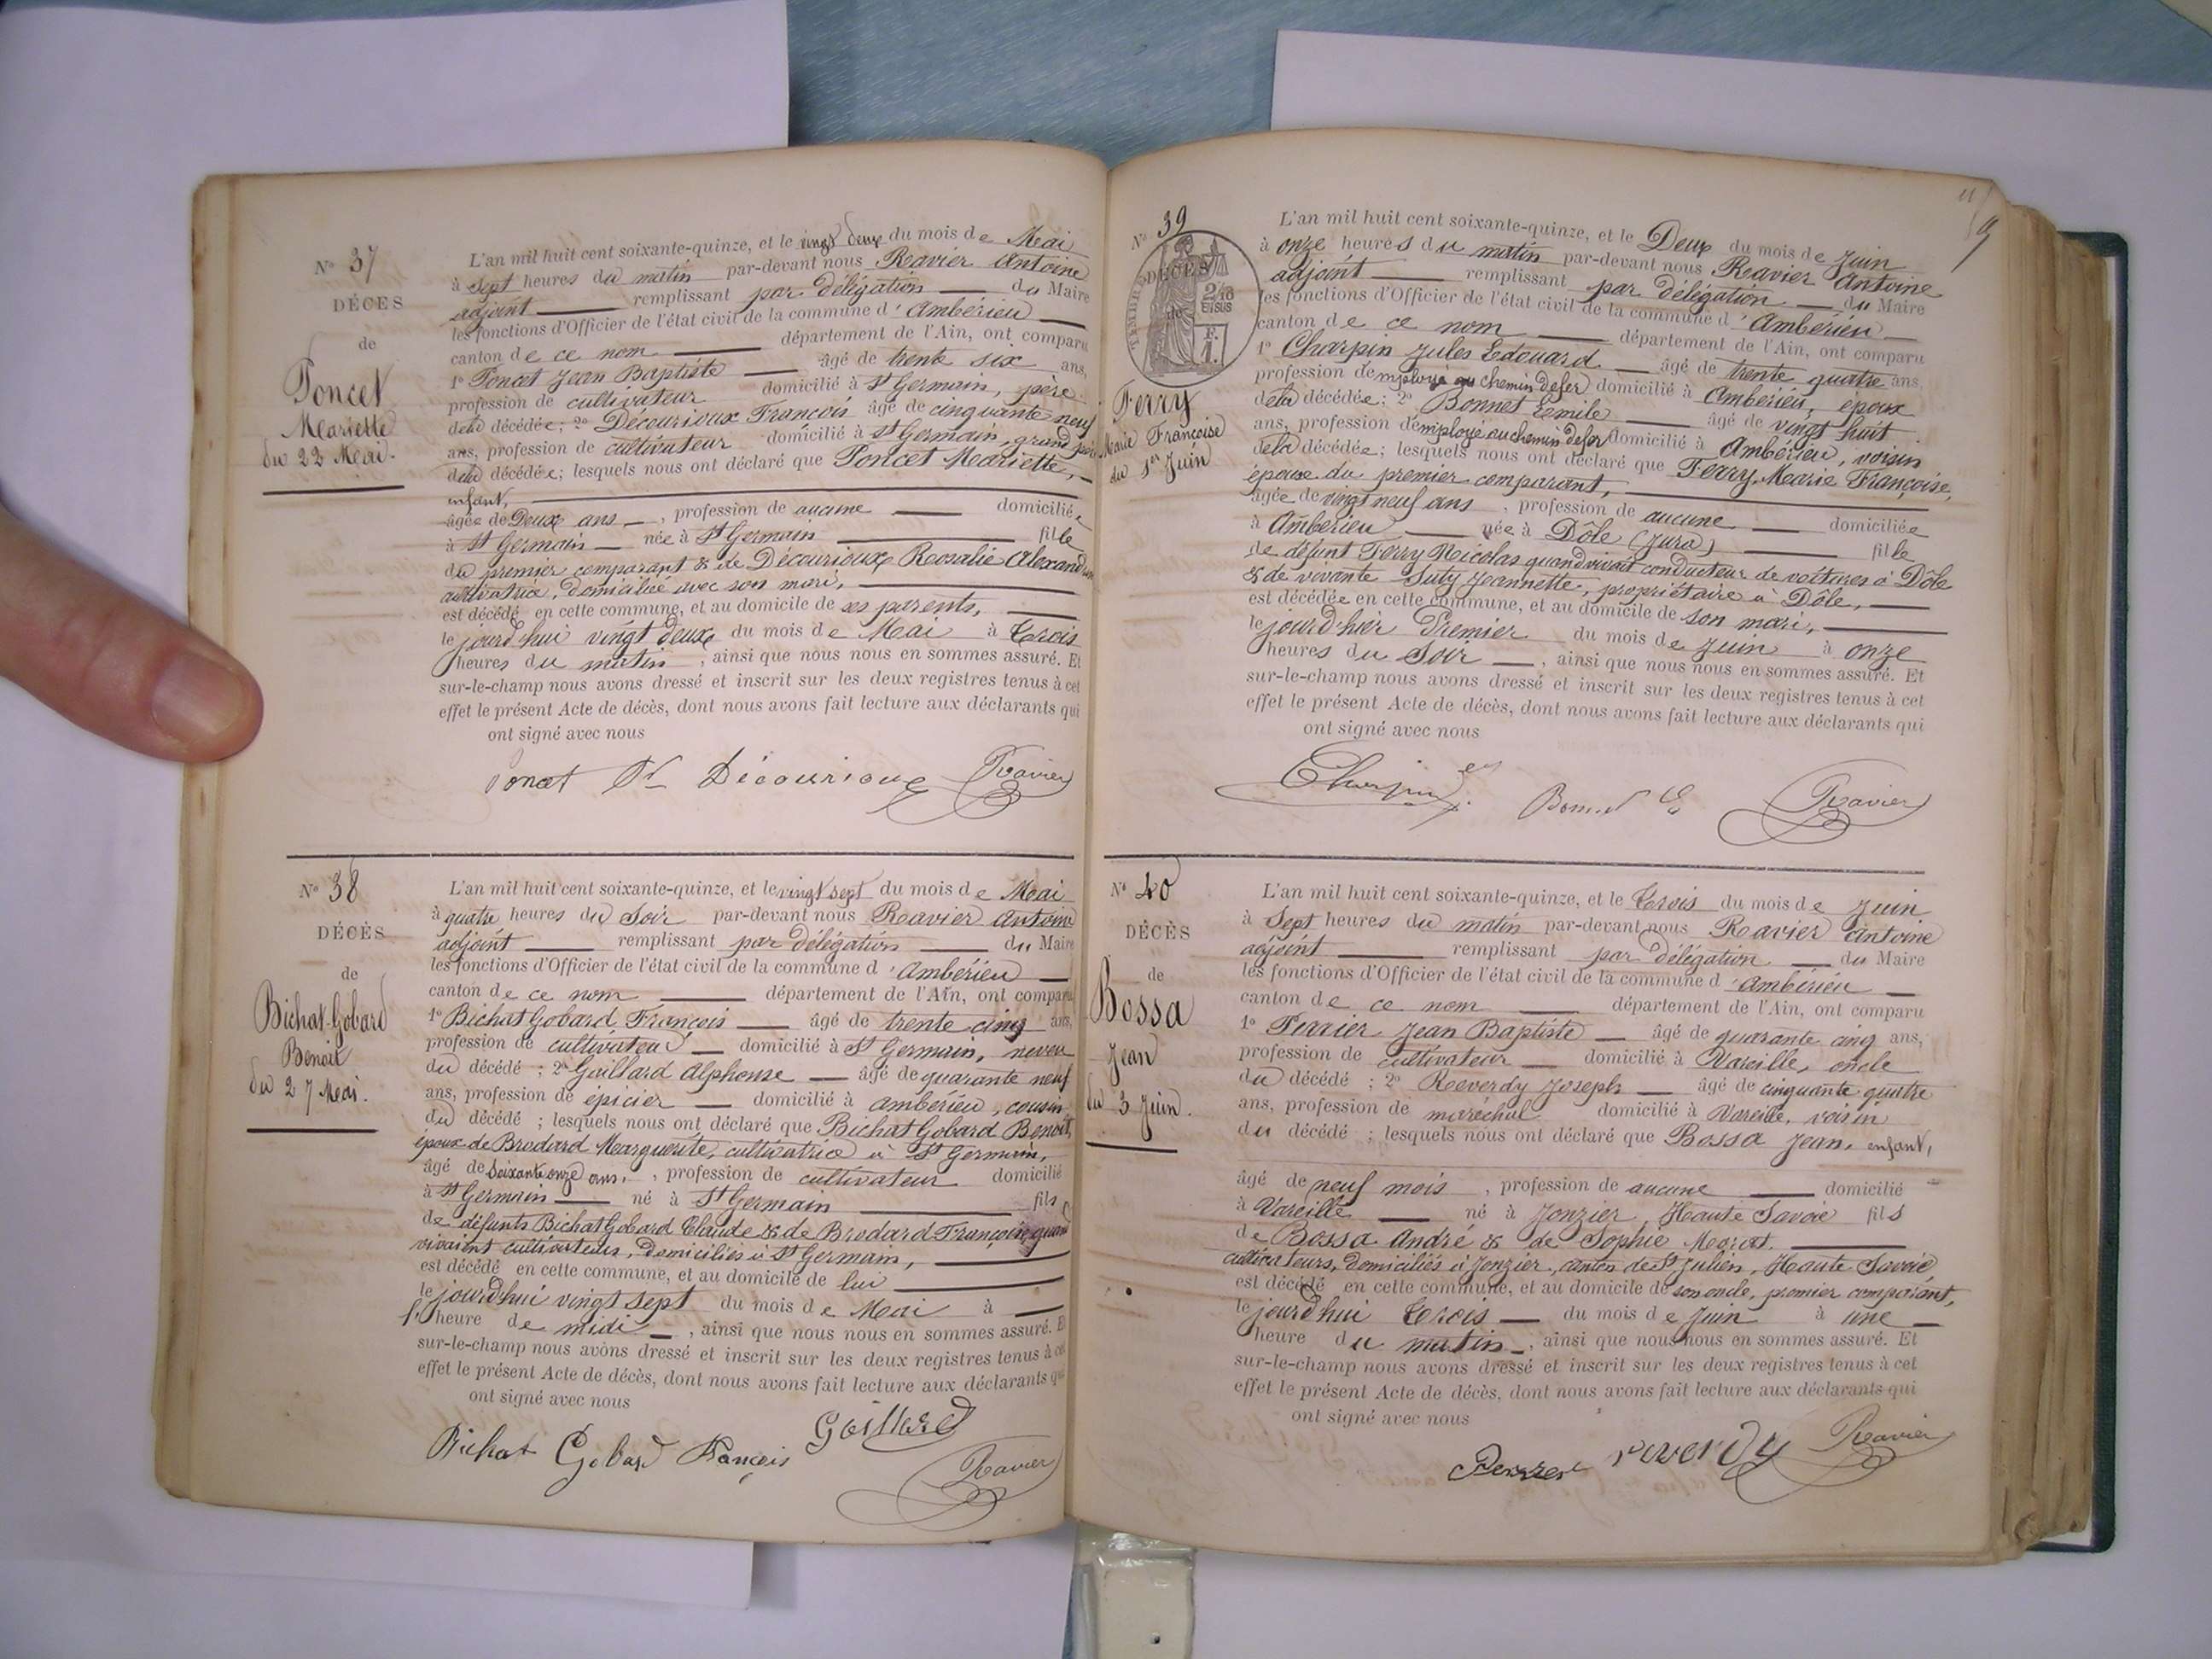 N° 37
DÉCÈS
de
Poncet
Mariette
du 22 Mai.
L'an mil huit cent soixante-quinze, et le vingt deux du mois de Mai
à sept heures du matin par-devant nous Ravier Antoine
adjoint remplissant par délégation du Maire
les fonctions d'Officier de l'état civil de la commune d'Ambérieu
canton de ce nom département de l'Ain, ont comparu
1° Poncet Jean Baptiste âgé de trente six ans,
profession de cultivateur domicilié à St Germain, père
de la décédée; 2° Décourioux François âgé de cinquante neuf
ans, profession de cultivateur domicilié à St Germain, grand père
de la décédée; lesquels nous ont déclaré que Poncet Mariette,
enfant,
âgée de Deux ans, profession de aucune domiciliée
à St Germain née à St Germain fille
du premier comparant & de Décourioux Rosalie Alexandrine
cultivatrice, domiciliée avec son mari,
est décédé en cette commune, et au domicile de ses parents,
le jourd'hui vingt deux du mois de Mai à trois
heures du matin, ainsi que nous nous en sommes assuré. Et
sur-le-champ nous avons dressé et inscrit sur les deux registres tenus à cet
effet le présent Acte de décès, dont nous avons fait lecture aux déclarants qui
ont signé avec nous
Poncet Décourioux Ravier
N° 38
DÉCÈS
de
Bichat-Gobard
Benoit
du 27 Mai.
L'an mil huit cent soixante-quinze, et le vingt sept du mois de Mai
à quatre heures du Soir par-devant nous Ravier Antoine
adjoint remplissant par délégation du Maire
les fonctions d'Officier de l'état civil de la commune d'Ambérieu
canton de ce nom département de l'Ain, ont comparu
1° Bichat Gobard, François âgé de trente cinq ans,
profession de cultivateur domicilié à St Germain, neveu
du décédé; 2° Gaillard Alphonse âgé de quarante neuf
ans, profession de épicier domicilié à Ambérieu, cousin
du décédé; lesquels nous ont déclaré que Bichat Gobard Benoit,
époux de Brodard Marguerite, cultivatrice à St Germain,
âgé de soixante onze ans, profession de cultivateur domicilié
à St Germain né à St Germain fils
de défunts Bichat Gobard Claude & de Brodard Françoise, quand
vivaient cultivateurs, domiciliés à St Germain,
est décédé en cette commune, et au domicile de lui
le jourd'hui vingt sept du mois de Mai à
l'heure de midi, ainsi que nous nous en sommes assuré. Et
sur-le-champ nous avons dressé et inscrit sur les deux registres tenus à cet
effet le présent Acte de décès, dont nous avons fait lecture aux déclarants qui
ont signé avec nous
Gaillard
Bichat Gobard François
Ravier
N° 39
DÉCÈS
de
2/10
EN SUS
F.
1.
Ferry
Marie Françoise
du 1er Juin
L'an mil huit cent soixante-quinze, et le Deux du mois de Juin
à onze heures du matin par-devant nous Ravier Antoine
adjoint remplissant par délégation du Maire
les fonctions d'Officier de l'état civil de la commune d'Ambérieu
canton de ce nom département de l'Ain, ont comparu
1° Charpin Jules Edouard âgé de trente quatre ans,
profession d'employé au chemin de fer domicilié à Ambérieu, époux
de la décédée; 2° Bonnet Emile âgé de vingt huit
ans, profession d'employé au chemin de fer domicilié à Ambérieu, voisin
de la décédée; lesquels nous ont déclaré que Ferry, Marie Françoise,
épouse du premier comparant,
âgée de vingt neuf ans, profession de aucune domiciliée
à Ambérieu née à Dôle (Jura) fille
de défunt Ferry Nicolas quand vivait conducteur de voitures à Dôle
& de vivante Suty Jeannette, propriétaire à Dôle,
est décédée en cette commune, et au domicile de son mari,
le jourd'hier Premier du mois de Juin à onze
heures du Soir, ainsi que nous nous en sommes assuré. Et
sur-le-champ nous avons dressé et inscrit sur les deux registres tenus à cet
effet le présent Acte de décès, dont nous avons fait lecture aux déclarants qui
ont signé avec nous
Charpin Bonnet E Ravier
N° 40
DÉCÈS
de
Bossa
Jean
du 3 Juin.
L'an mil huit cent soixante-quinze, et le trois du mois de Juin
à Sept heures du matin par-devant nous Ravier Antoine
adjoint remplissant par délégation du Maire
les fonctions d'Officier de l'état civil de la commune d'Ambérieu
canton de ce nom département de l'Ain, ont comparu
1° Perrier Jean Baptiste âgé de quarante cinq ans,
profession de cultivateur domicilié à Vareille, oncle
du décédé; 2° Reverdy Joseph âgé de cinquante quatre
ans, profession de maréchal domicilié à Vareille, voisin
du décédé; lesquels nous ont déclaré que Bossa Jean, enfant,
âgé de neuf mois, profession de aucune domicilié
à Vareille né à Jonzier, Haute Savoie fils
de Bossa André & de Sophie Marat.
cultivateurs, domiciliés à Jonzier, canton de St Julien, Haute Savoie
est décédé en cette commune, et au domicile de son oncle, premier comparant,
le jourd'hui trois du mois de Juin à une
heure du matin, ainsi que nous nous en sommes assuré. Et
sur-le-champ nous avons dressé et inscrit sur les deux registres tenus à cet
effet le présent Acte de décès, dont nous avons fait lecture aux déclarants qui
ont signé avec nous
Perrier reverdy Ravier